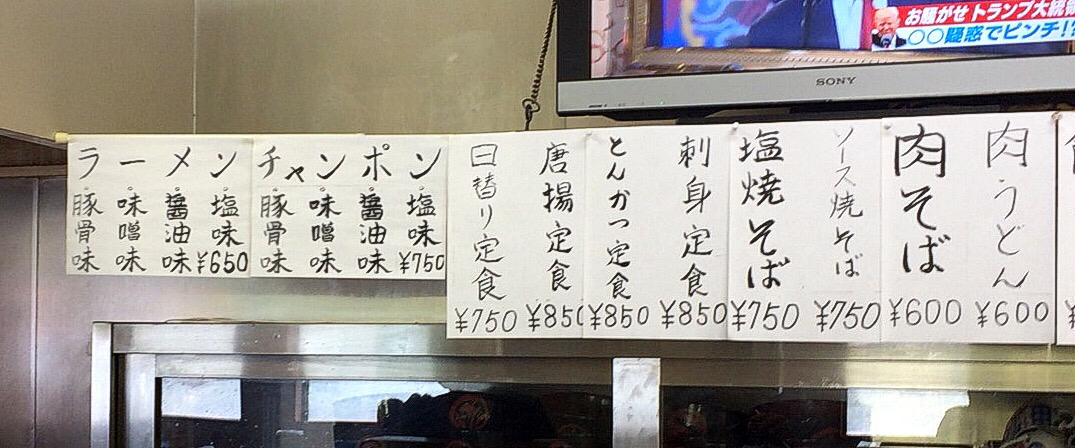 お騒がせトランプ大統領
〇〇疑惑でピンチ!?
SONY
ラーメン
豚骨味
味噌味
醤油味
塩味
¥650
チャンポン
豚骨味
味噌味
醤油味
塩味
¥750
日替り定食
¥750
唐揚定食
¥850
とんかつ定食
¥850
刺身定食
¥850
塩焼そば
¥750
ソース焼そば
¥750
肉そば
¥600
肉うどん
¥600